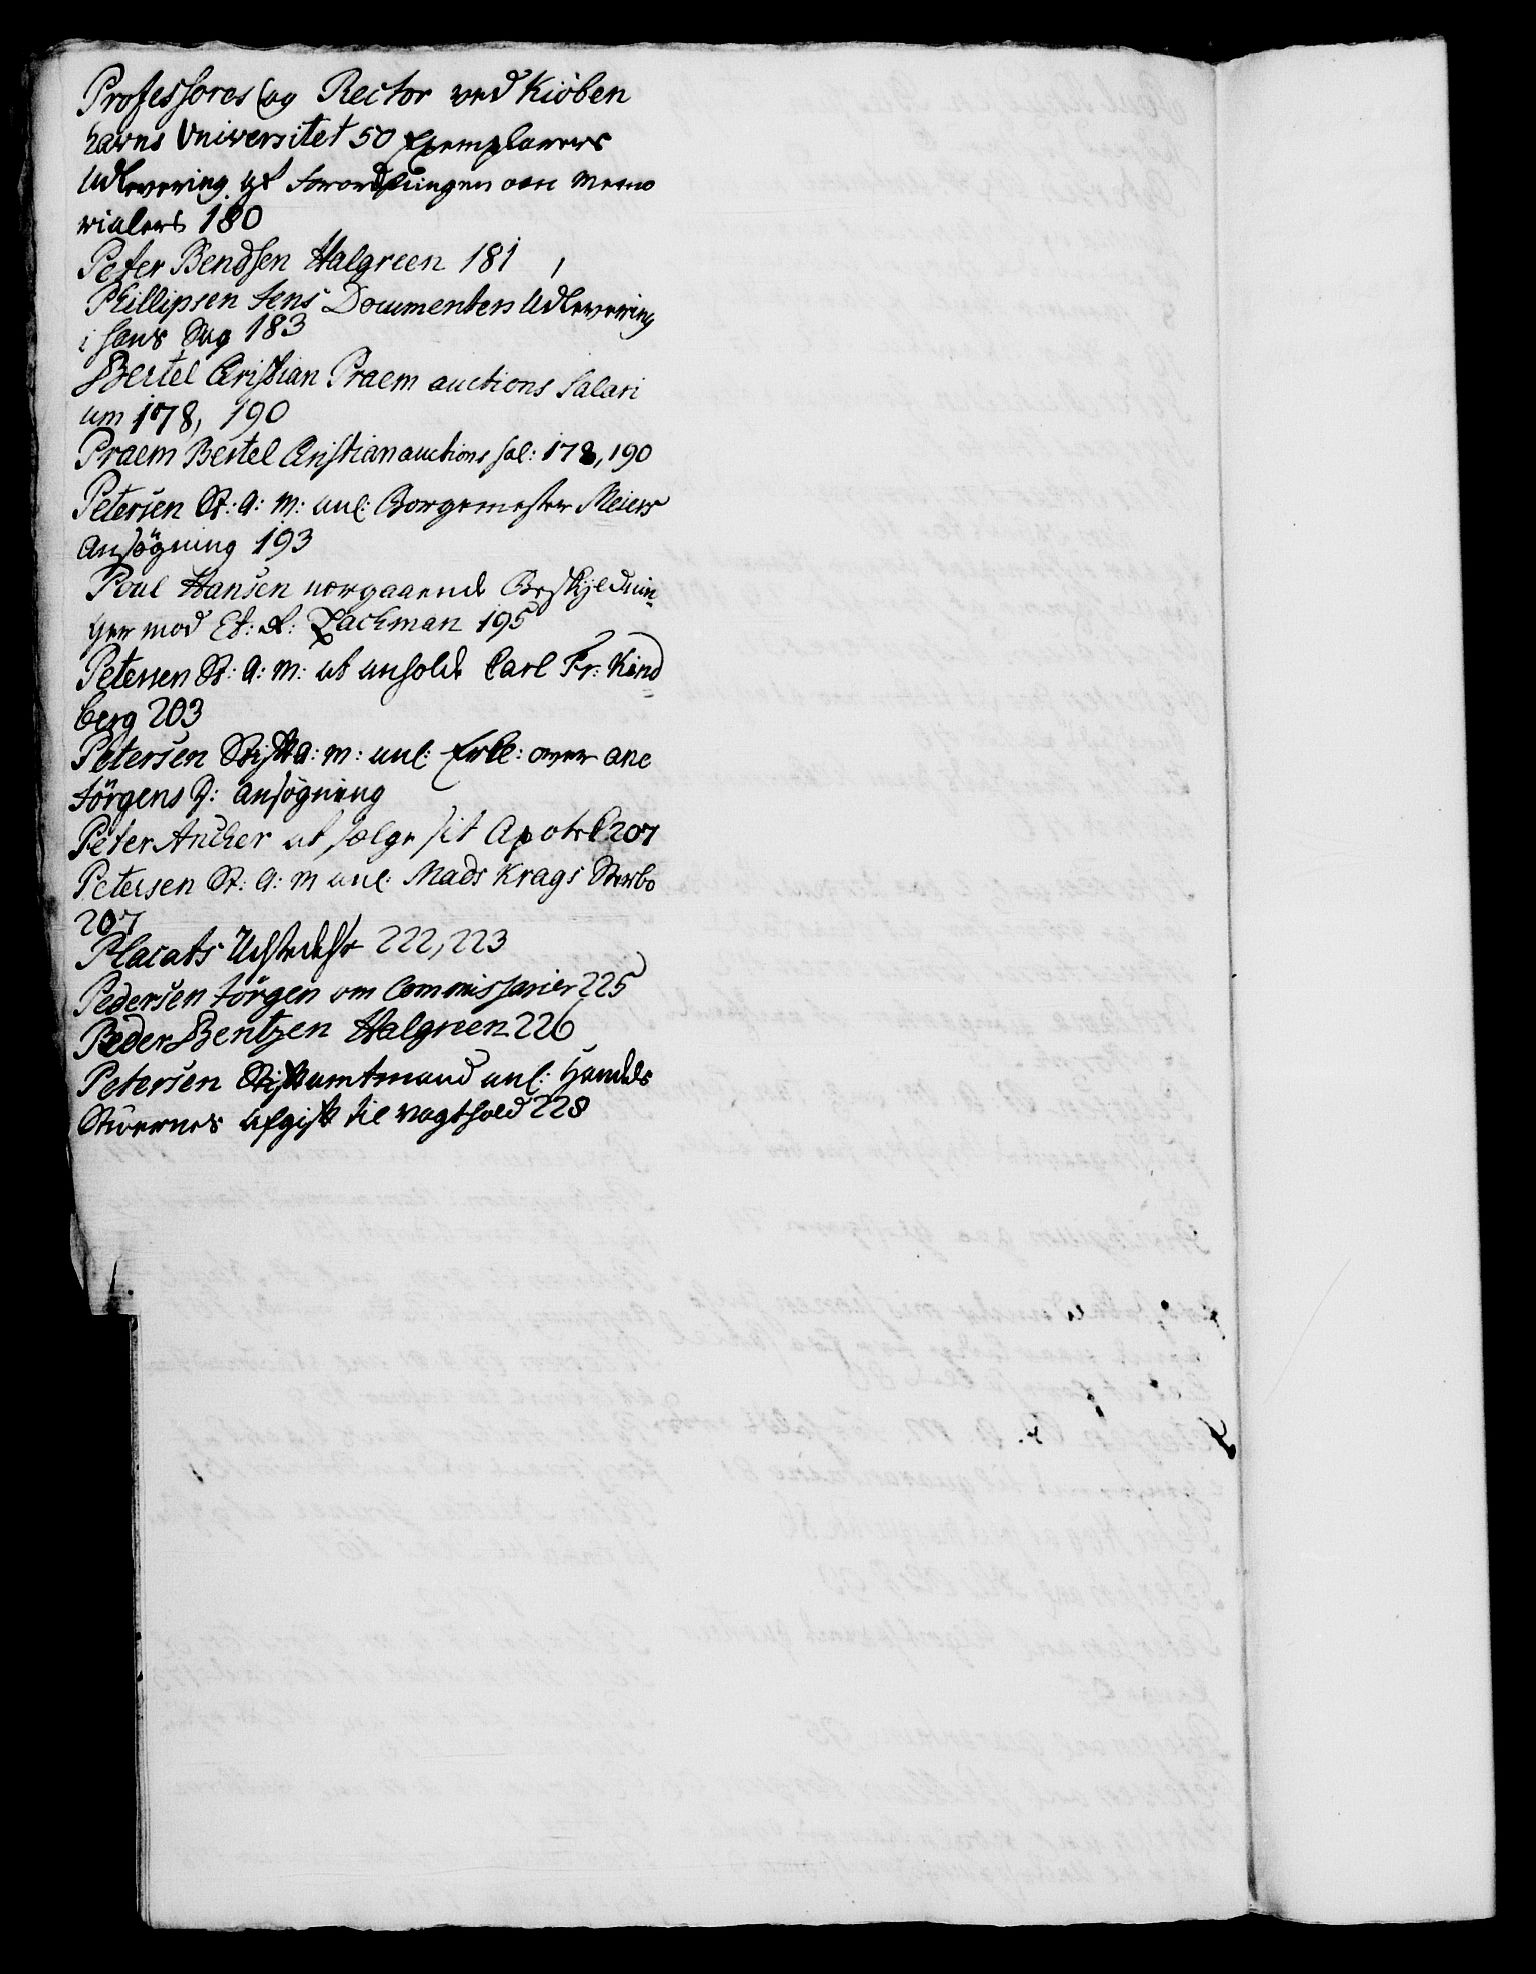 Professores og Rector ved Kiöben
havns Universitet 50 Exemplarers
Udlevering af Forordningen om Memo
rialers 180
Peter Bendsen Halgreen 181
Phillipsen Jens Documenters Udlevering
i hans Sag 183
Bertel Cristian Praem auctions Salari
um 178, 190
Praem Bertel Cristian auctions sal: 178, 190
Petersen St: a: m: anl: Borgemester Meiers
Ansögning 193
Poul Hansen Beskyldnin-
ger mod Et: R: Zachman 195
Petersen St: a: m: at anholde Carl Fr: Kind
berg 203
Petersen Stifta: m: anl: Erkl: over ane
Jörgens D: ansögning
Peter Ancher at sælge sit Apotek 207
Petersen St: a: m anl: Mads Krags Sterbo
207
Placats Udstedelse 222, 223
Pedersen Jörgen om Commissarier 225
Peder Bentzen Halgreen 226
Petersen Stiftamtmand anl: Handels
Svernes Afgift til vagthold 228